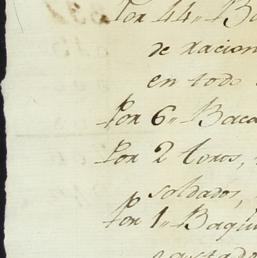 Por 44,, Ba
de racion
en todo
Por 6,, Baca
Por 2 toros,
soldados,
Por 1,, Baqui
gastado